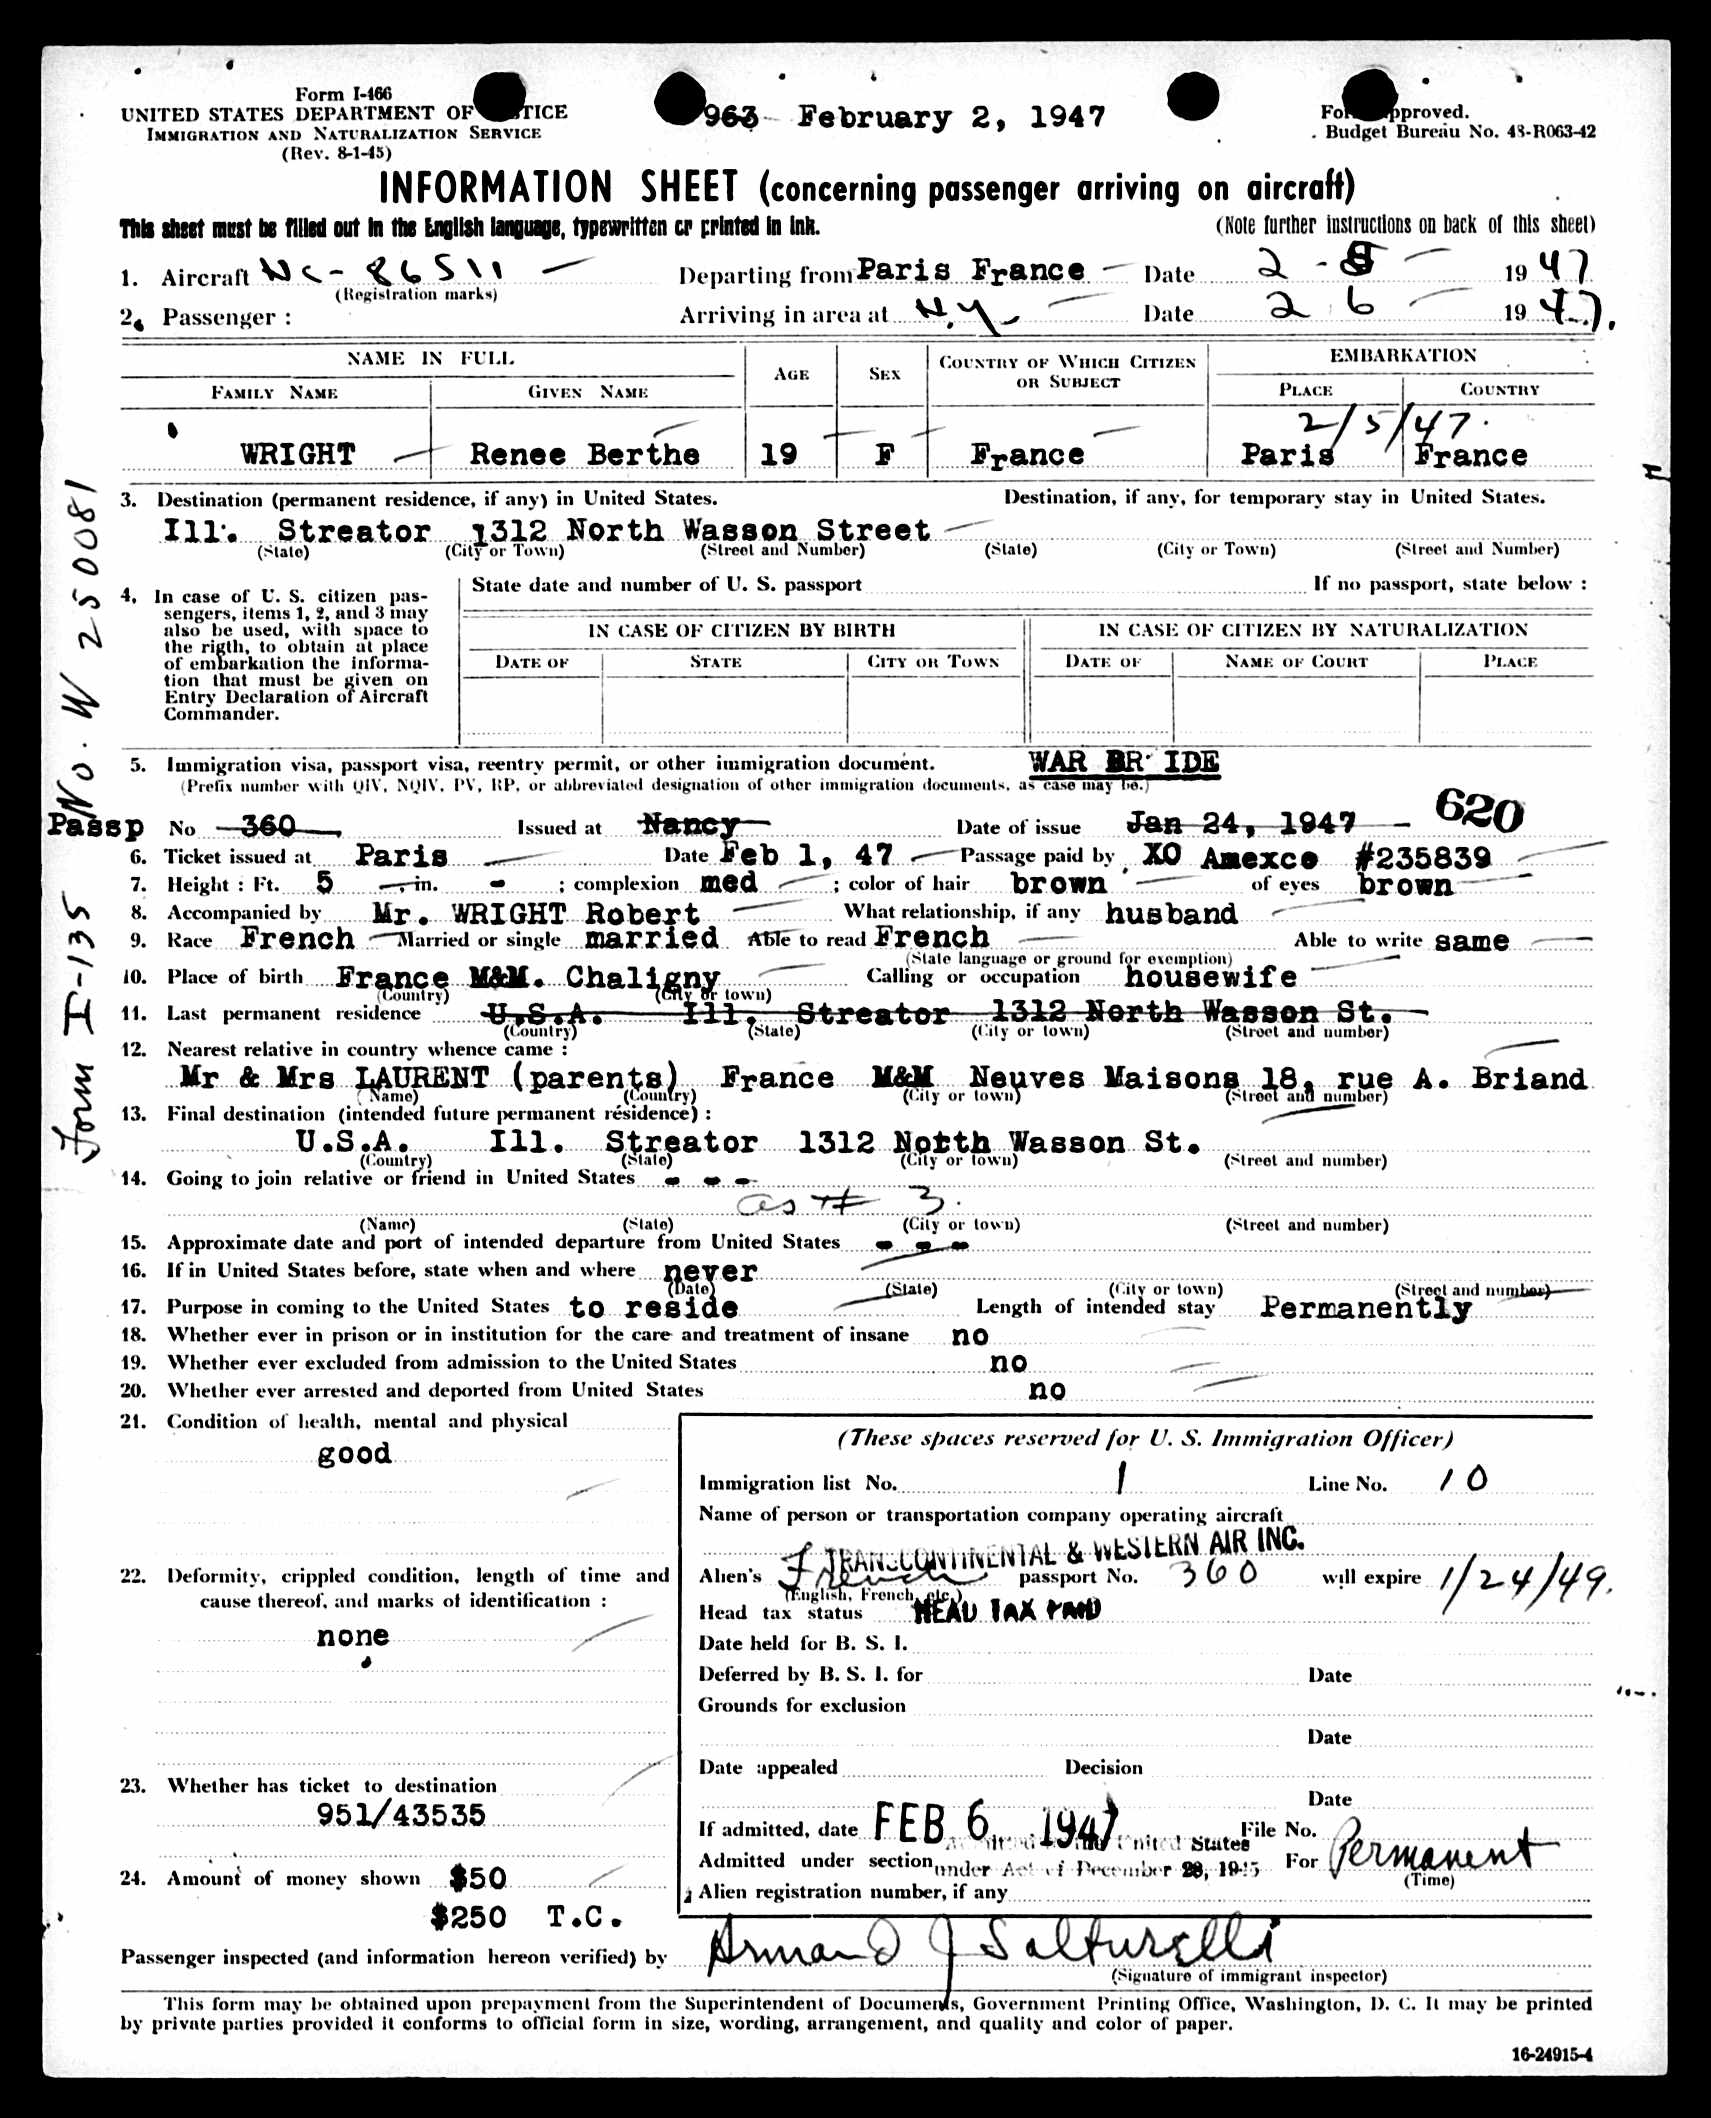 Form I-466
UNITED STATES DEPARTMENT OF TICE
IMMIGRATION AND NATURALIZATION SERVICE
(Rev. 8-1-45)
963 February 2, 1947
Approved.
Budget Bureau No. 43-R063-42
INFORMATION SHEET (concerning passenger arriving on aircraft)
This sheet must be filled out in the English language, typewritten or printed in ink. (Note further instructions on back of this sheet)
1. Aircraft NC-86511 Departing from Paris France Date 2-5 1947
(Registration marks)
2. Passenger : Arriving in area at N.Y. Date 2 6 1947.
NAME IN FULL AGE SEX COUNTRY OF WHICH CITIZEN OR SUBJECT EMBARKATION
FAMILY NAME GIVEN NAME PLACE COUNTRY
2/5/47.
WRIGHT Renee Berthe 19 F France Paris France
3. Destination (permanent residence, if any) in United States. Destination, if any, for temporary stay in United States.
Ill. Streator 1312 North Wasson Street
(State) (City or Town) (Street and Number) (State) (City or Town) (Street and Number)
4. In case of U. S. citizen pas-
sengers, items 1, 2, and 3 may
also be used, with space to
the rigth, to obtain at place
of embarkation the informa-
tion that must be given on
Entry Declaration of Aircraft
Commander.
State date and number of U. S. passport If no passport, state below :
IN CASE OF CITIZEN BY BIRTH IN CASE OF CITIZEN BY NATURALIZATION
DATE OF STATE CITY OR TOWN DATE OF NAME OF COURT PLACE
5. Immigration visa, passport visa, reentry permit, or other immigration document. WAR BR IDE
(Prefix number with QIV, NQIV, PV, RP, or abbreviated designation of other immigration documents, as case may be.)
620
Passp No 360 Issued at Nancy Date of issue Jan 24, 1947
6. Ticket issued at Paris Date Feb 1, 47 Passage paid by XO Amexco #235839
7. Height : Ft. 5 , in. - ; complexion med ; color of hair brown of eyes brown
8. Accompanied by Mr. WRIGHT Robert What relationship, if any husband
9. Race French Married or single married Able to read French Able to write same
(State language or ground for exemption)
10. Place of birth France M&M. Chaligny Calling or occupation housewife
(Country) (City or town)
11. Last permanent residence U.S.A. Ill. Streator 1312 North Wasson St.
(Country) (State) (City or town) (Street and number)
12. Nearest relative in country whence came :
Mr & Mrs LAURENT (parents) France M&M Neuves Maisons 18, rue A. Briand
(Name) (Country) (City or town) (Street and number)
13. Final destination (intended future permanent résidence) :
U.S.A. Ill. Streator 1312 North Wasson St.
(Country) (State) (City or town) (Street and number)
14. Going to join relative or friend in United States - - -
as # 3.
(Name) (State) (City or town) (Street and number)
15. Approximate date and port of intended departure from United States - - -
16. If in United States before, state when and where never
(Date) (State) (City or town) (Street and number)
17. Purpose in coming to the United States to reside Length of intended stay Permanently
18. Whether ever in prison or in institution for the care and treatment of insane no
19. Whether ever excluded from admission to the United States no
20. Whether ever arrested and deported from United States no
21. Condition of health, mental and physical
good
22. Deformity, crippled condition, length of time and
cause thereof, and marks of identification :
none
23. Whether has ticket to destination
951/43535
24. Amount of money shown $50
$250 T.C.
(These spaces reserved for U. S. Immigration Officer)
Immigration list No. 1 Line No. 10
Name of person or transportation company operating aircraft
TRANSCONTINENTAL & WESTERN AIR INC.
Alien's French passport No. 360 will expire 1/24/49.
(English, French, etc.)
Head tax status HEAD TAX PAID
Date held for B. S. I.
Deferred by B. S. I. for Date
Grounds for exclusion
Date
Date appealed Decision
Date
If admitted, date FEB 6 1947 File No.
Admitted to the United States
Admitted under section under Act of December 28, 1945 For Permanent
(Time)
Alien registration number, if any
Passenger inspected (and information hereon verified) by Armand J Salturelli
(Signature of immigrant inspector)
This form may be obtained upon prepayment from the Superintendent of Documents, Government Printing Office, Washington, D. C. It may be printed
by private parties provided it conforms to official form in size, wording, arrangement, and quality and color of paper.
16-24915-4
Form I-135 No. W 250081